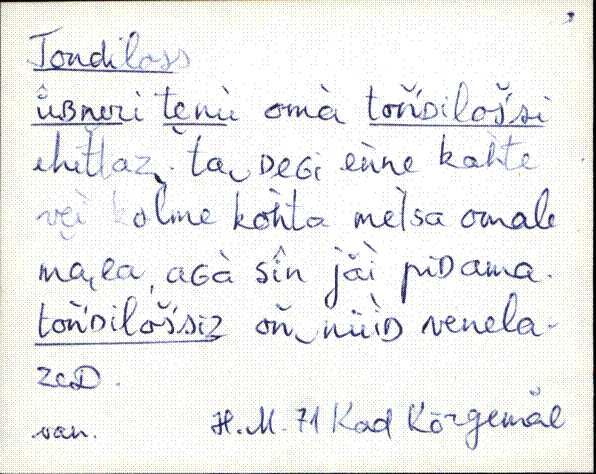 Tondiloss
ûʙneri tenù omà toň́ᴅiloš́si
ehiťlaz. ta ᴅeɢi eǜne kahte
vei kolme koh̀ta meìsa omale
ma, ea, aɢà sîn jäì piᴅama.
toň́ᴅiloš́siz oň nüìᴅ venela-
zeᴅ.
van. H. M. 71 Kad Kõrgemäe